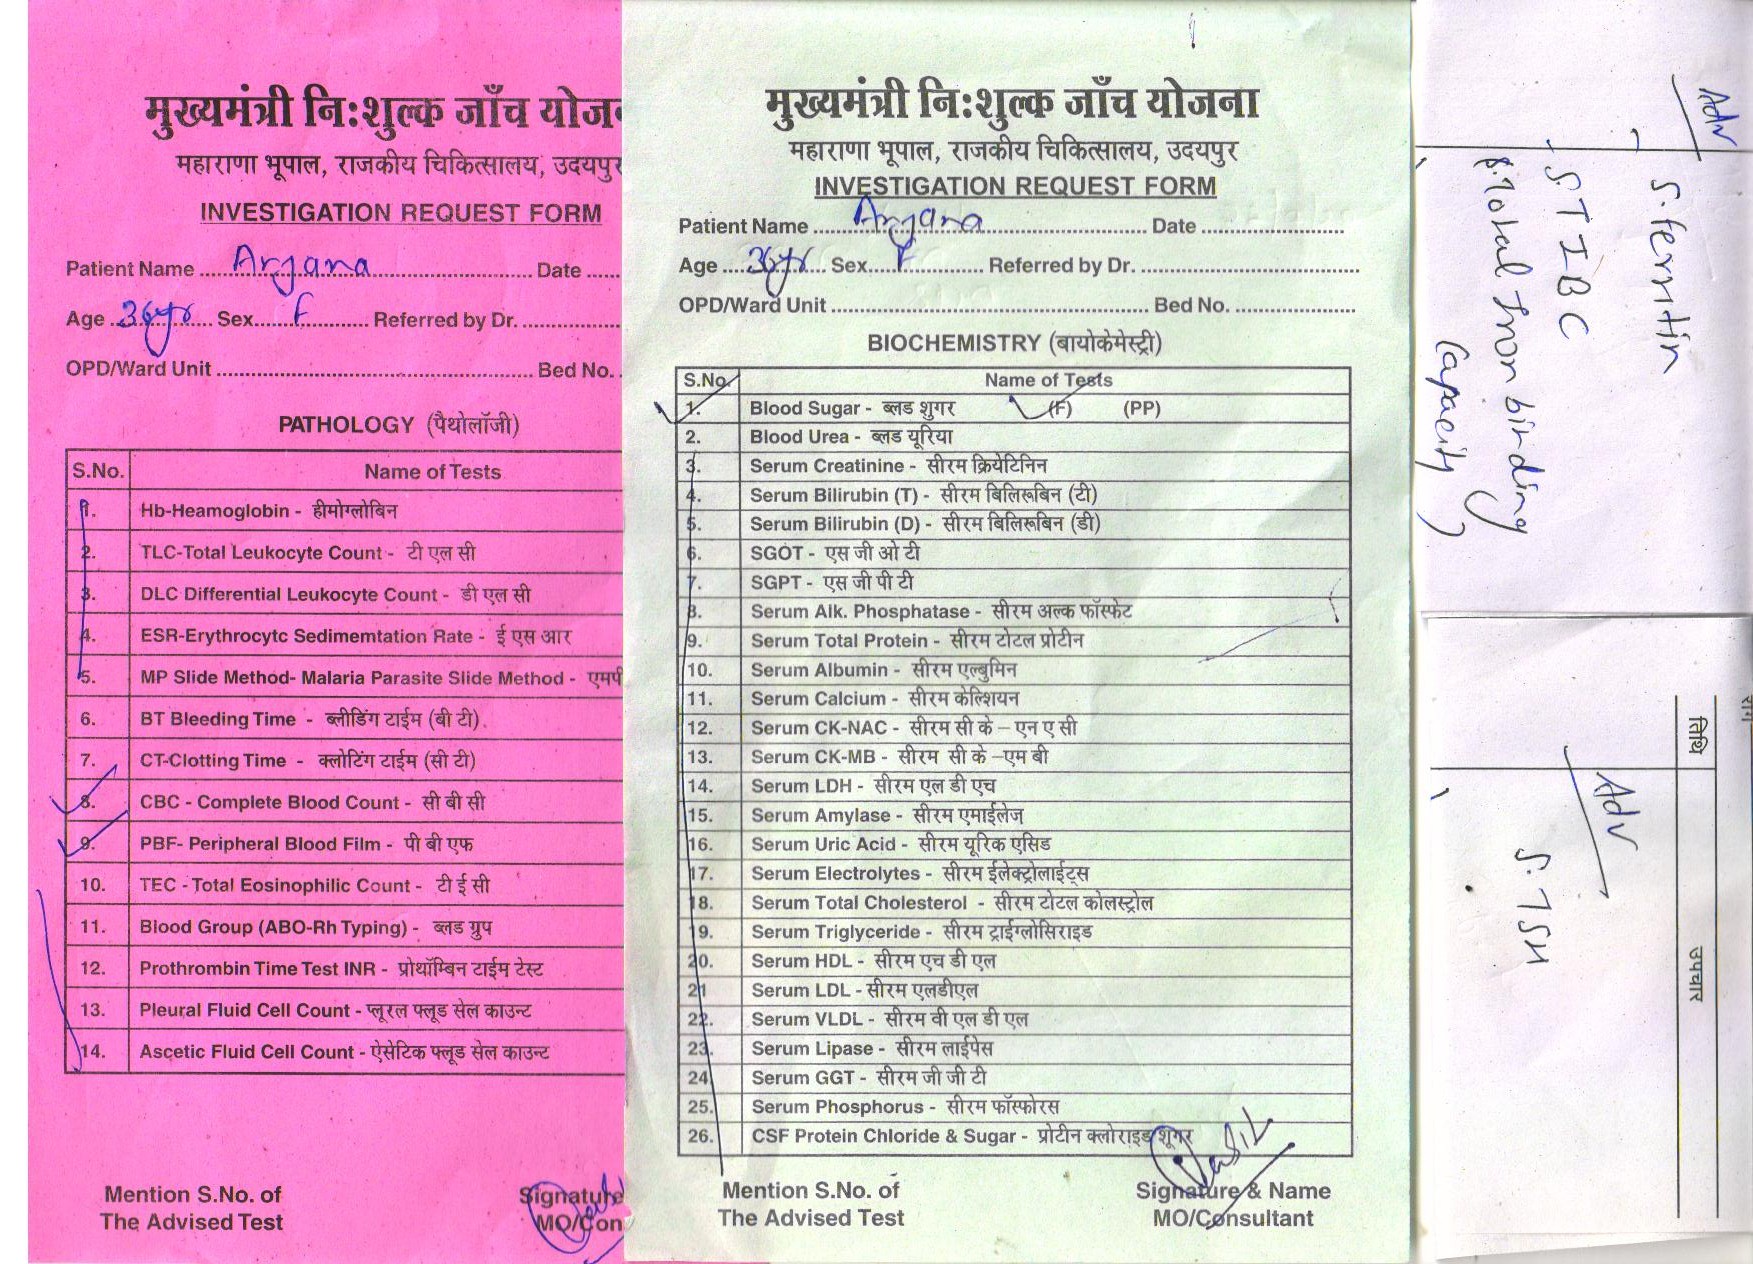 मुख्यमंत्री नि:शुल्क जाँच योजना
महाराणा भूपाल, राजकीय चिकित्सालय, उदयपुर
INVESTIGATION REQUEST FORM
Patient Name Arjana Date
Age 36yr Sex F Referred by Dr.
OPD/Ward Unit Bed No.
PATHOLOGY (पैथोलॉजी)
S.No. Name of Tests
1. Hb-Heamoglobin - हीमोग्लोबिन
2. TLC-Total Leukocyte Count - टी एल सी
3. DLC Differential Leukocyte Count - डी एल सी
4. ESR-Erythrocytc Sedimemtation Rate - ई एस आर
5. MP Slide Method- Malaria Parasite Slide Method - एमपी
6. BT Bleeding Time - ब्लीडिंग टाईम (बी टी)
7. CT-Clotting Time - क्लोटिंग टाईम (सी टी)
8. CBC - Complete Blood Count - सी बी सी
9. PBF- Peripheral Blood Film - पी बी एफ
10. TEC - Total Eosinophilic Count - टी ई सी
11. Blood Group (ABO-Rh Typing) - ब्लड ग्रुप
12. Prothrombin Time Test INR - प्रोथॉम्बिन टाईम टेस्ट
13. Pleural Fluid Cell Count - प्लूरल फ्लूड सेल काउन्ट
14. Ascetic Fluid Cell Count - ऐसेटिक फ्लूड सेल काउन्ट
Mention S.No. of Signature
The Advised Test MO/Con
मुख्यमंत्री नि:शुल्क जाँच योजना
महाराणा भूपाल, राजकीय चिकित्सालय, उदयपुर
INVESTIGATION REQUEST FORM
Patient Name Arjana Date
Age 36yr Sex F Referred by Dr.
OPD/Ward Unit Bed No.
BIOCHEMISTRY (बायोकेमेस्ट्री)
S.No. Name of Tests
1. Blood Sugar - ब्लड शुगर (F) (PP)
2. Blood Urea - ब्लड यूरिया
3. Serum Creatinine - सीरम क्रियेटिनिन
4. Serum Bilirubin (T) - सीरम बिलिरूबिन (टी)
5. Serum Bilirubin (D) - सीरम बिलिरूबिन (डी)
6. SGOT - एस जी ओ टी
7. SGPT - एस जी पी टी
8. Serum Alk. Phosphatase - सीरम अल्क फॉस्फेट
9. Serum Total Protein - सीरम टोटल प्रोटीन
10. Serum Albumin - सीरम एल्बुमिन
11. Serum Calcium - सीरम केल्शियन
12. Serum CK-NAC - सीरम सी के – एन ए सी
13. Serum CK-MB - सीरम सी के –एम बी
14. Serum LDH - सीरम एल डी एच
15. Serum Amylase - सीरम एमाईलेज
16. Serum Uric Acid - सीरम यूरिक एसिड
17. Serum Electrolytes - सीरम ईलेक्ट्रोलाईट्स
18. Serum Total Cholesterol - सीरम टोटल कोलस्ट्रोल
19. Serum Triglyceride - सीरम ट्राईग्लोसिराइड
20. Serum HDL - सीरम एच डी एल
21 Serum LDL - सीरम एलडीएल
22. Serum VLDL - सीरम वी एल डी एल
23. Serum Lipase - सीरम लाईपेस
24 Serum GGT - सीरम जी जी टी
25. Serum Phosphorus - सीरम फॉस्फोरस
26. CSF Protein Chloride & Sugar - प्रोटीन क्लोराइड शूगर
Mention S.No. of Signature & Name
The Advised Test MO/Consultant
Adv
S. Ferritin
S. TIBC
S. Total Iron binding
Capacity)
तिथि उपचार
Adv
S. TSH